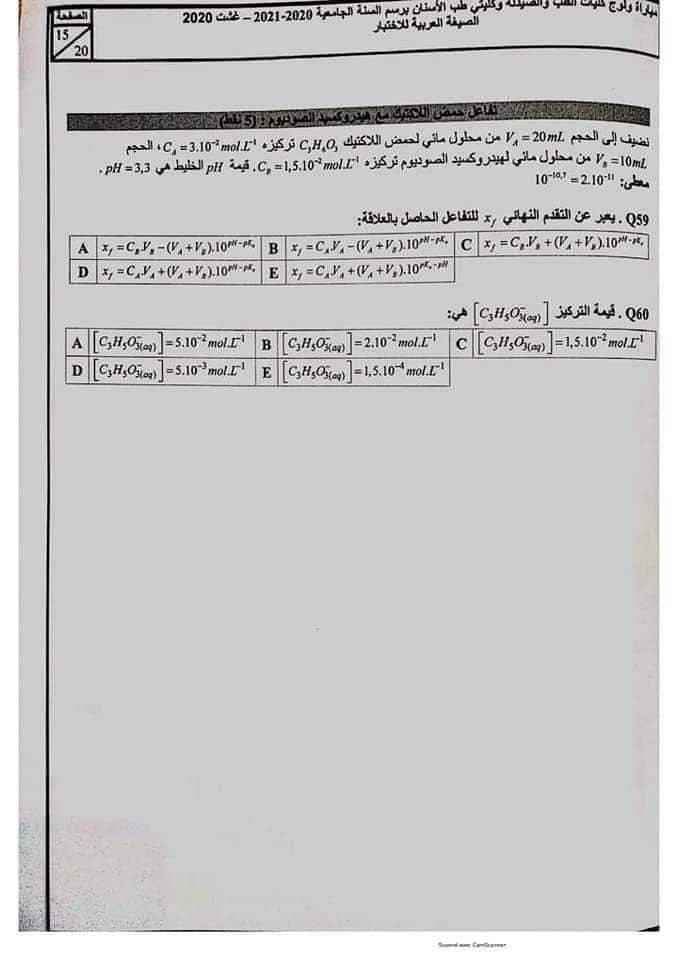 مباراة ولوج كليات الطب والصيدلة وكليتي طب الأسنان برسم السنة الجامعية 2020-2021 – غشت 2020
الصيغة العربية للاختبار
الصفحة
15
20
تفاعل حمض اللاكتيك مع هيدروكسيد الصوديوم : (5 نقط)
نضيف إلى الحجم V_A = 20mL من محلول مائي لحمض اللاكتيك C₃H₆O₃ تركيزه C_A = 3.10⁻² mol.L⁻¹، الحجم
V_B = 10mL من محلول مائي لهيدروكسيد الصوديوم تركيزه C_B = 1,5.10⁻² mol.L⁻¹. قيمة pH الخليط هي pH = 3,3 .
معطى: 10^{-10,7} = 2.10⁻¹¹
Q59 . يعبر عن التقدم النهائي x_f للتفاعل الحاصل بالعلاقة:
A x_f = C_B.V_B − (V_A + V_B).10^{pH−pK_e} B x_f = C_A.V_A − (V_A + V_B).10^{pH−pK_e} C x_f = C_B.V_B + (V_A + V_B).10^{pH−pK_e}
D x_f = C_A.V_A + (V_A + V_B).10^{pH−pK_e} E x_f = C_A.V_A + (V_A + V_B).10^{pK_e−pH}
Q60 . قيمة التركيز [C₃H₅O₃⁻(aq)] هي:
A [C₃H₅O₃⁻(aq)] = 5.10⁻² mol.L⁻¹ B [C₃H₅O₃⁻(aq)] = 2.10⁻² mol.L⁻¹ C [C₃H₅O₃⁻(aq)] = 1,5.10⁻² mol.L⁻¹
D [C₃H₅O₃⁻(aq)] = 5.10⁻³ mol.L⁻¹ E [C₃H₅O₃⁻(aq)] = 1,5.10⁻⁴ mol.L⁻¹
Scanned avec CamScanner